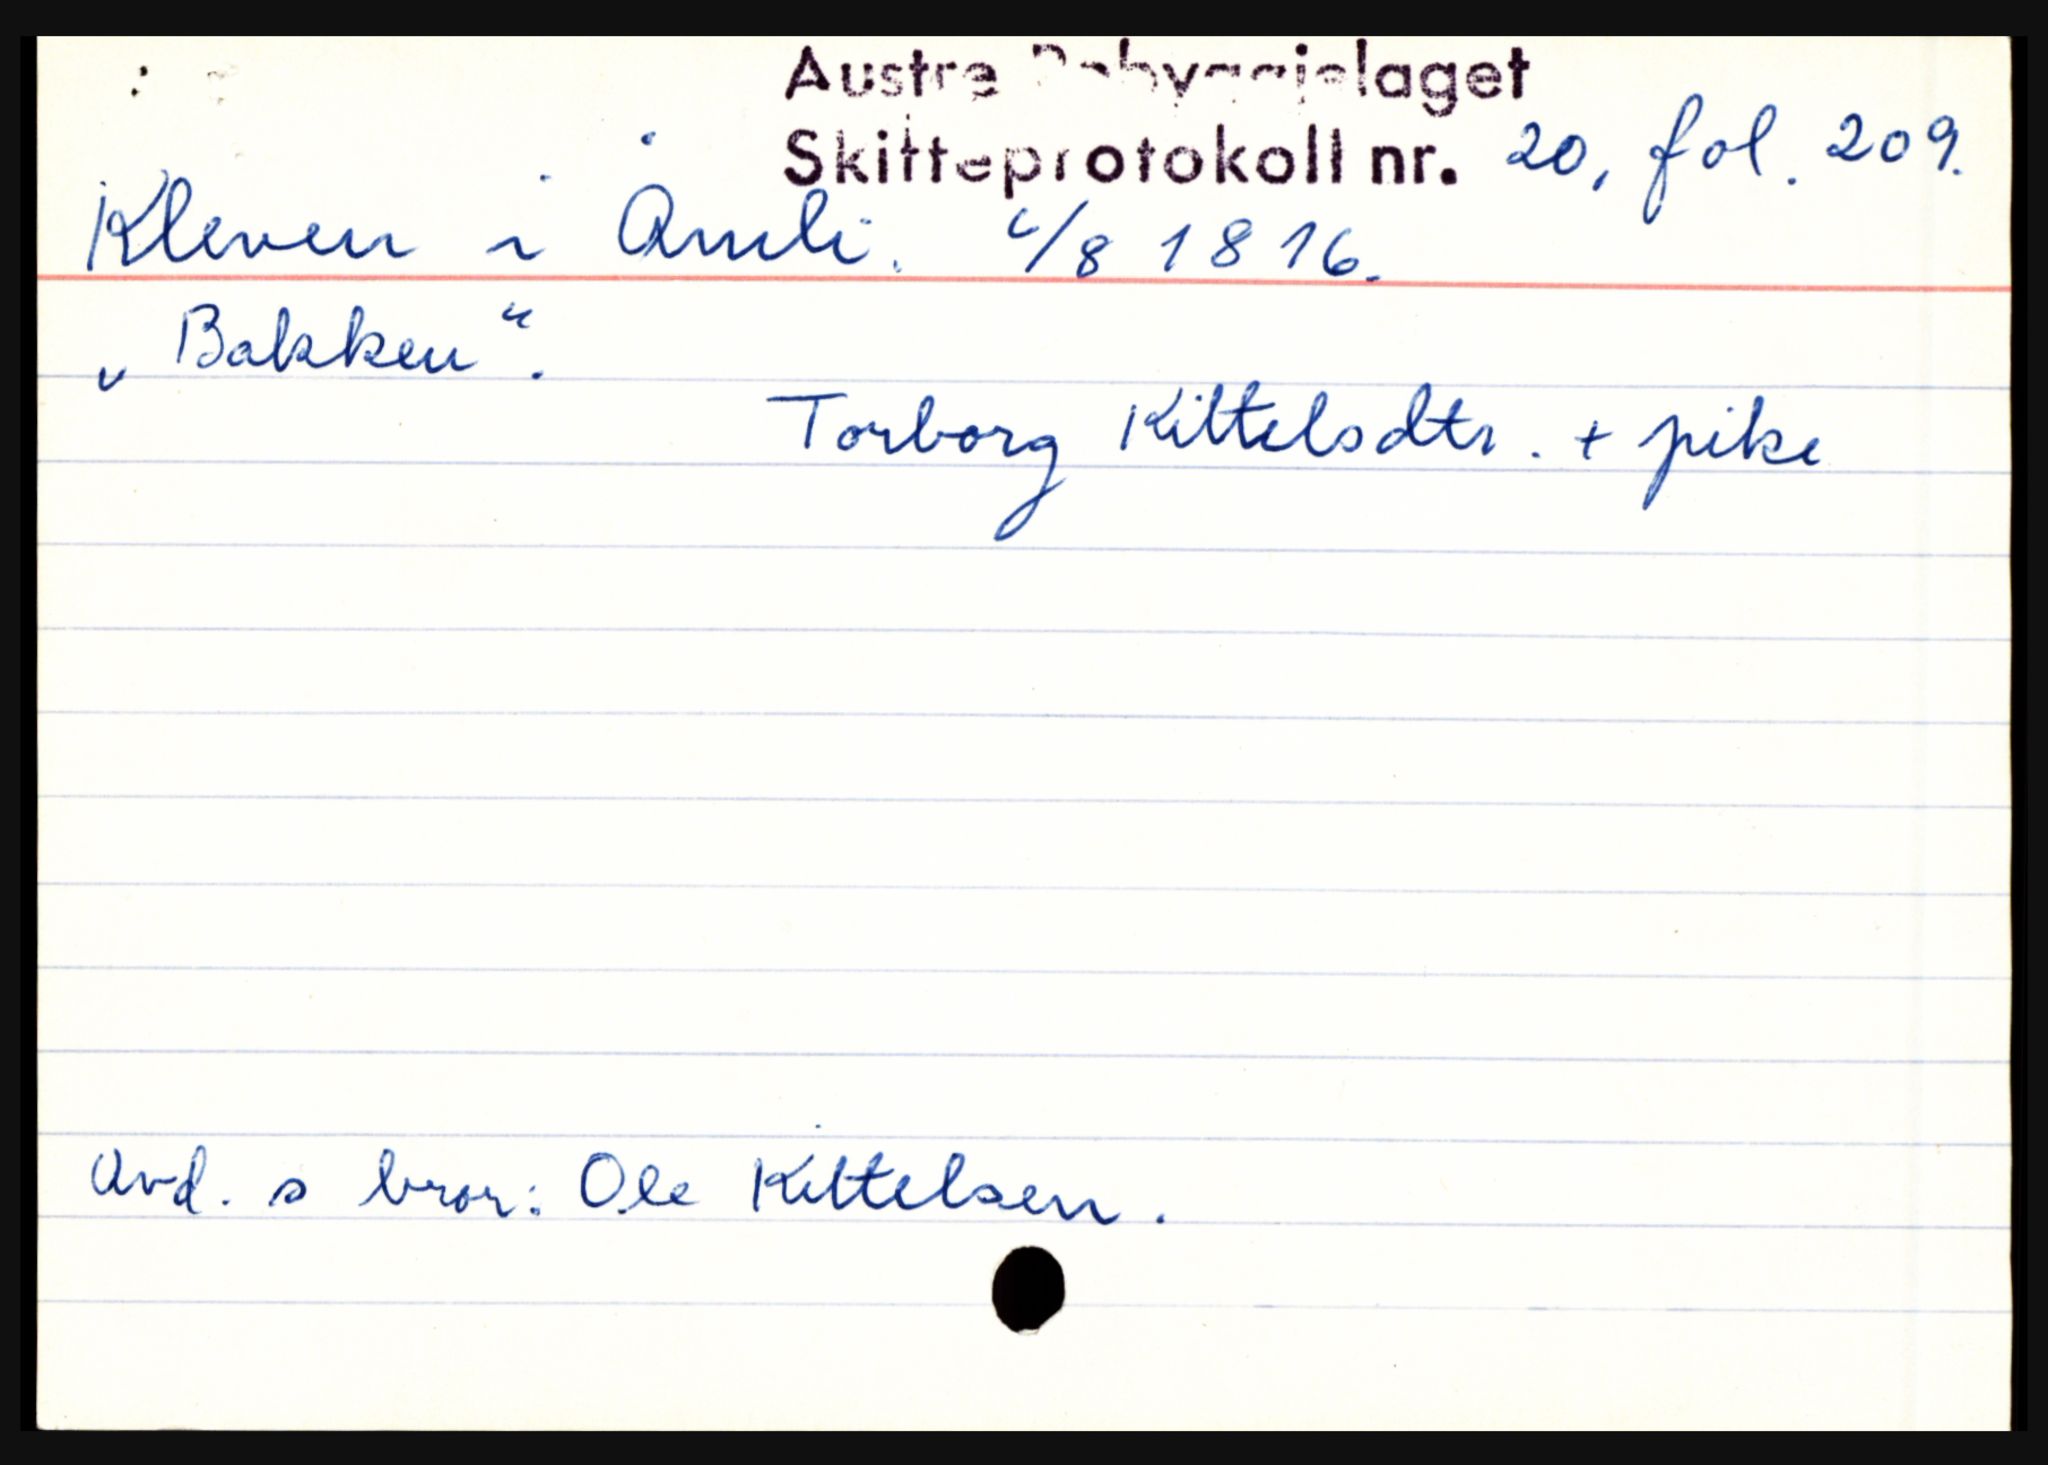 Austre Råbyggjelaget
Skifteprotokoll nr. 20, fol. 209.
Kleven i Åmli. /8 1816.
„Bakken“.
Torborg Kittelsdtr. + pike
Avd. s bror: Ole Kittelsen.